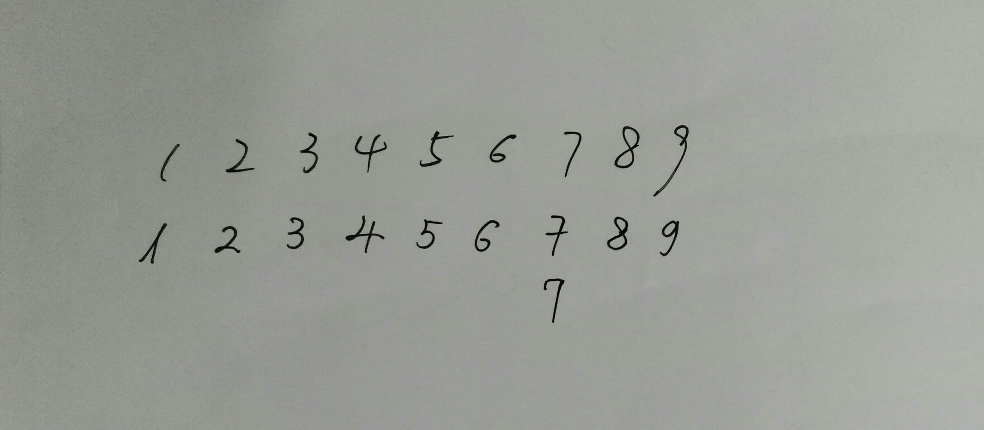 1 2 3 4 5 6 7 8 9
1 2 3 4 5 6 7 8 9
7